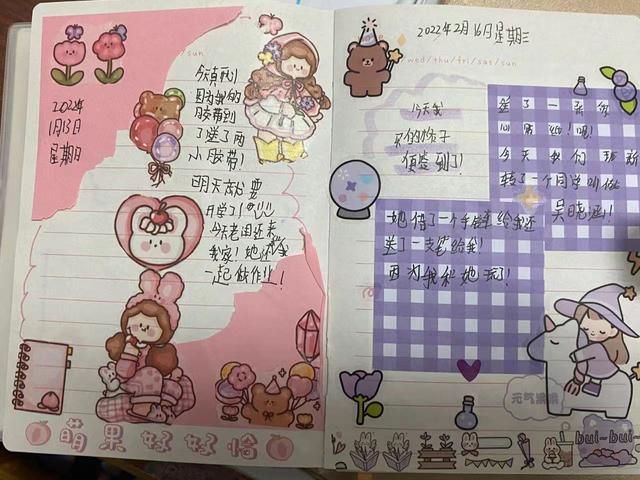 2022年
1月13日
星期日
/sun
今天真开心
因为我的
胶带到
了送了两
小胶带!
明天就要
开学了!
今天老闺还来
我家!她还和我
一起做作业!
萌果好好恰
2022年2月16日星期三
wed/thu/fri/sat/sun
今天我
买的格子
便签到了!
送了一
今天我们班
转了一个同学叫做
她借了一个手链给我还
送了一支笔给我!
因为我和她玩了!
元气
bui~bui~